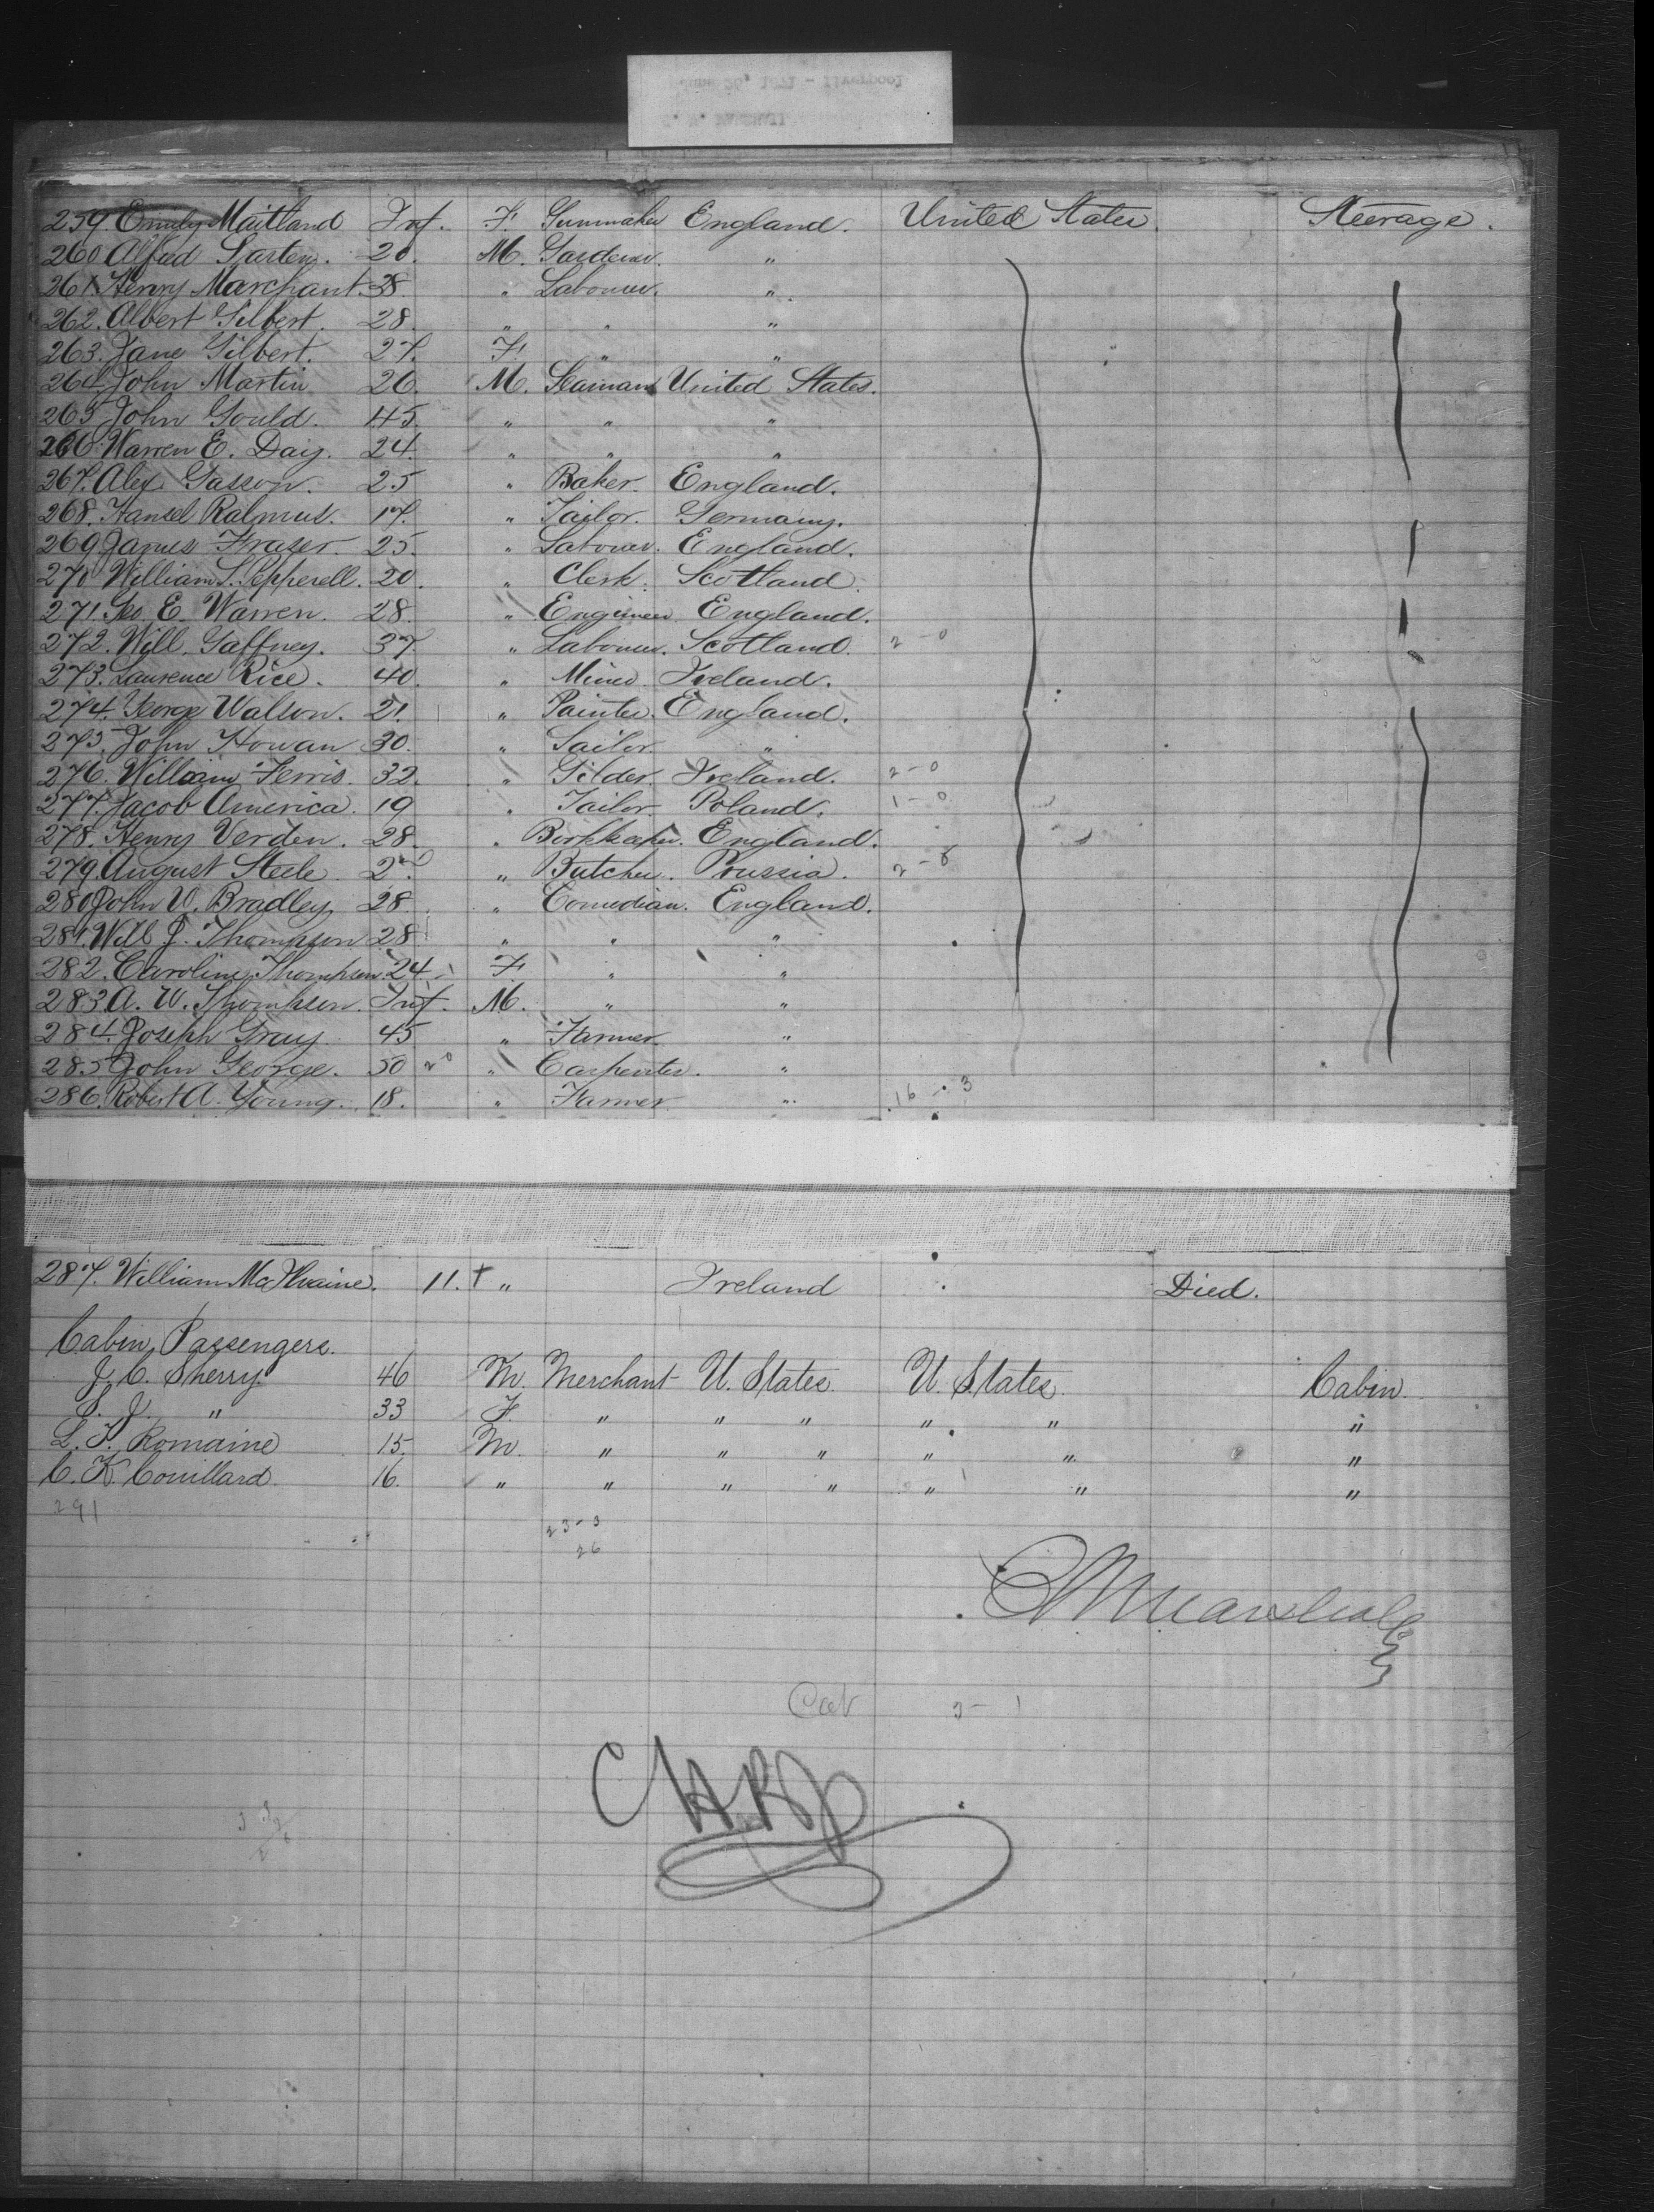 259. Emily Maitland Inf. F. Gunmaker England. United States. Steerage.
260 Alfred 20. M. Gardener. "
261. Henry Marchant. 38. " Labourer. "
262. Albert Gilbert. 28. " " "
263. Jane Gilbert. 27. F. " "
264. John Martin 26. M. Seaman United States.
265 John Gould. 45. " " "
266. Warren E. Day. 24. " " "
267. Alex. Gasson. 25 " Baker. England.
268. Hansel Ralmus. 17. " Tailor. Germany.
269 James Fraser. 25. " Labourer. England.
270 William S. Pepperell. 20. " Clerk. Scotland.
271. Geo. E. Warren. 28. " Engineer England.
272. Will. Gaffney. 37. " Labourer. Scotland. 2-0
273. Laurence Rice. 40. " Miner. Ireland.
274. George Walson. 21. " Painter. England.
275. John Howan 30. " Sailor "
276. William Ferris. 32. " Gilder. Ireland. 2-0
277. Jacob America. 19 " Tailor. Poland. 1-0
278. Henry Verden. 28. " Bookkeeper. England.
279 August Steele " Butcher. Prussia.
280 John W. Bradley 28. " Comedian. England.
281. Will J. Thompson 28 " " "
282. Caroline Thompson. 24. F. " "
283 A. W. Thompson. Inf. M. " "
284. Joseph Gray. 45 " Farmer "
285 John George. 50 " Carpenter. "
286. Robert A. Young. 18. " Farmer " 16-3
287. William McIlvaine. 11. † " Ireland Died.
Cabin Passengers.
J. C. Sherry 46 M. Merchant U. States. U. States. Cabin.
J. " 33 F. " " " " " "
L. F. Romaine 15. M. " " " " " "
C. K. Couillard. 16. " " " " " " "
291
23-3
26
Marshall